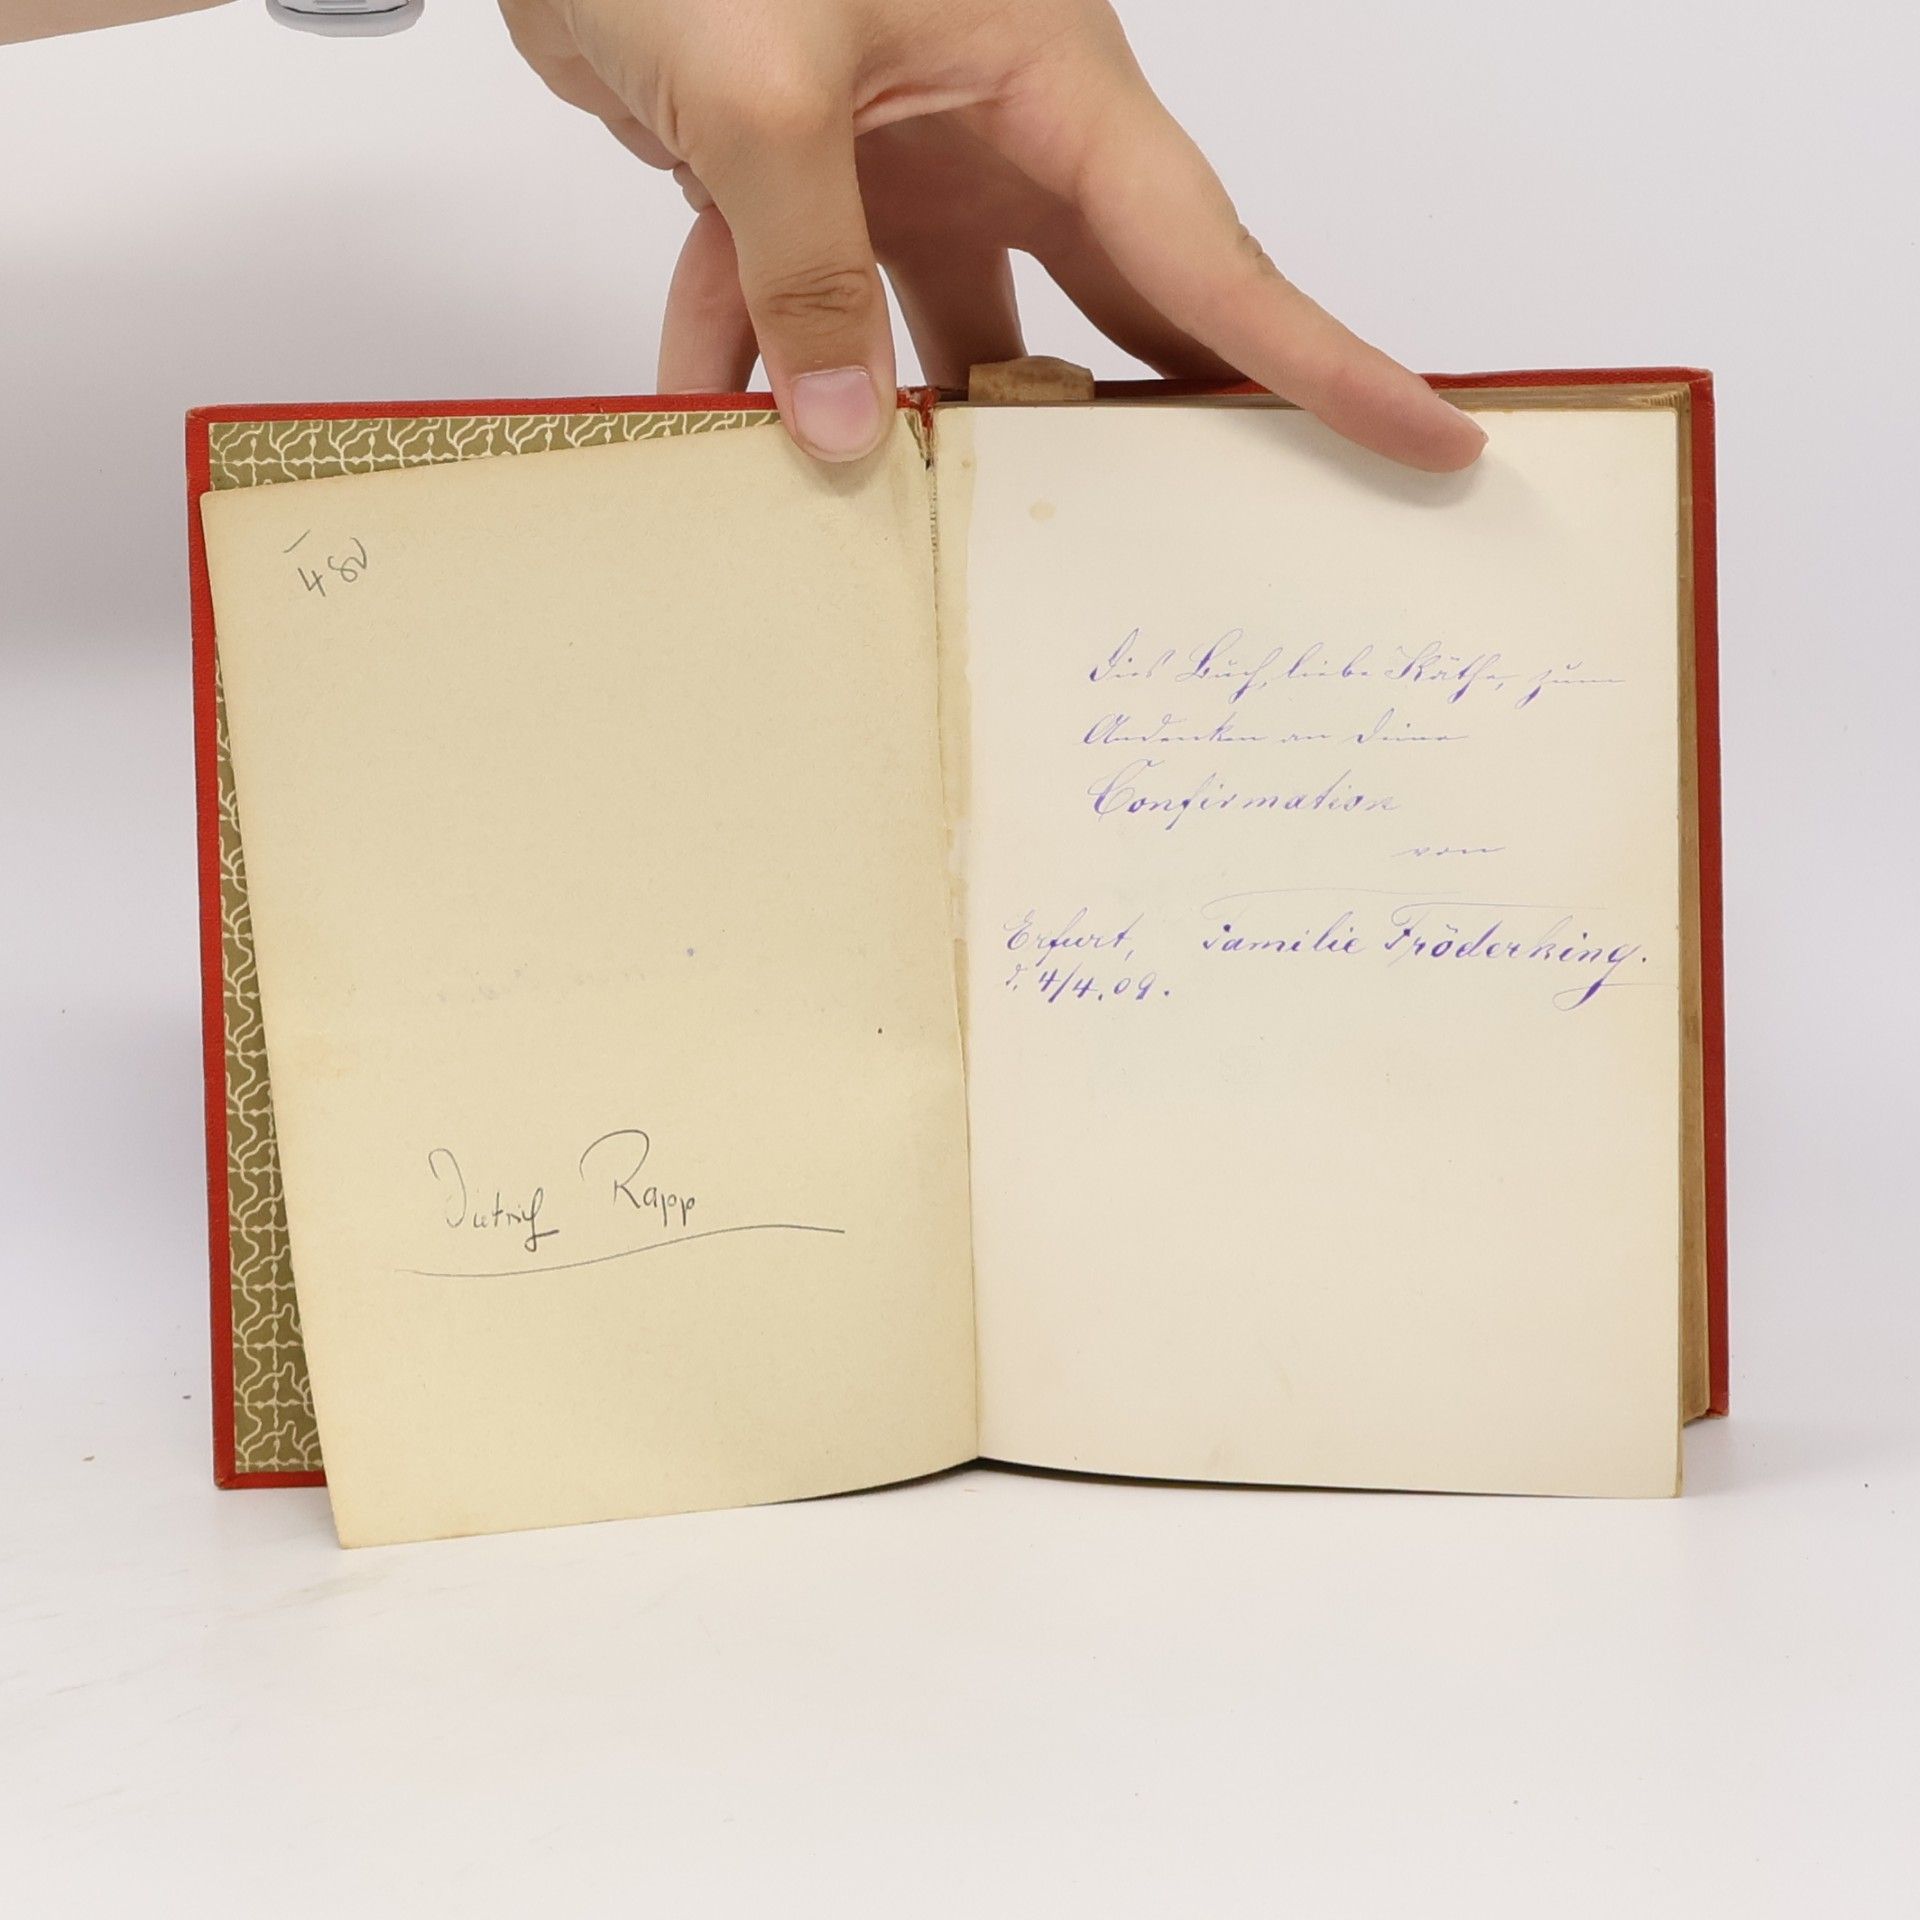 480
Dietrich Rapp
Dies Buch, liebe Käthe, zum
Andenken an Deine
Confirmation
von
Erfurt, Familie Fröderking.
d. 4/4.09.